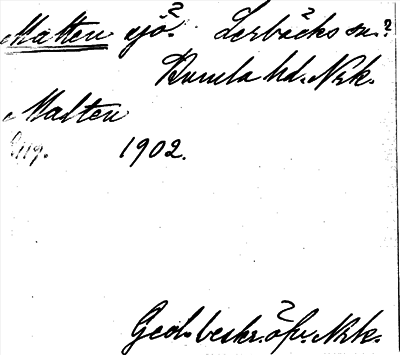 Malten sjö? Lerbäcks sn.?
Kumla hd. Nrk.
Malten
1902.
Geol. beskr. öfv. Nrk.